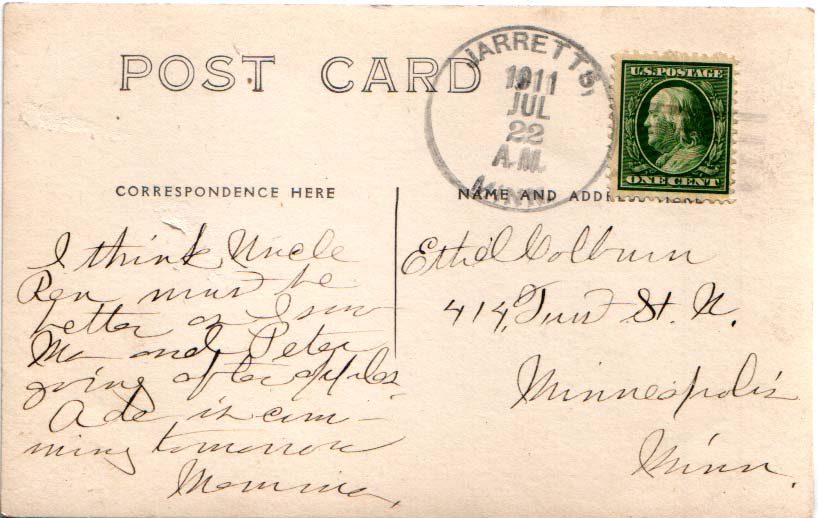 POST CARD
JARRETTS,
1911
JUL
22
A.M.
MINN.
U.S. POSTAGE
ONE CENT
CORRESPONDENCE HERE
NAME AND ADDRESS HERE
I think Uncle
Ren must be
better as I saw
Ma and Peter
going after apples
Ade is com-
ming tomorrow
Mamma.
Ethel Colburn
414, St. N.
Minneapolis
Minn.